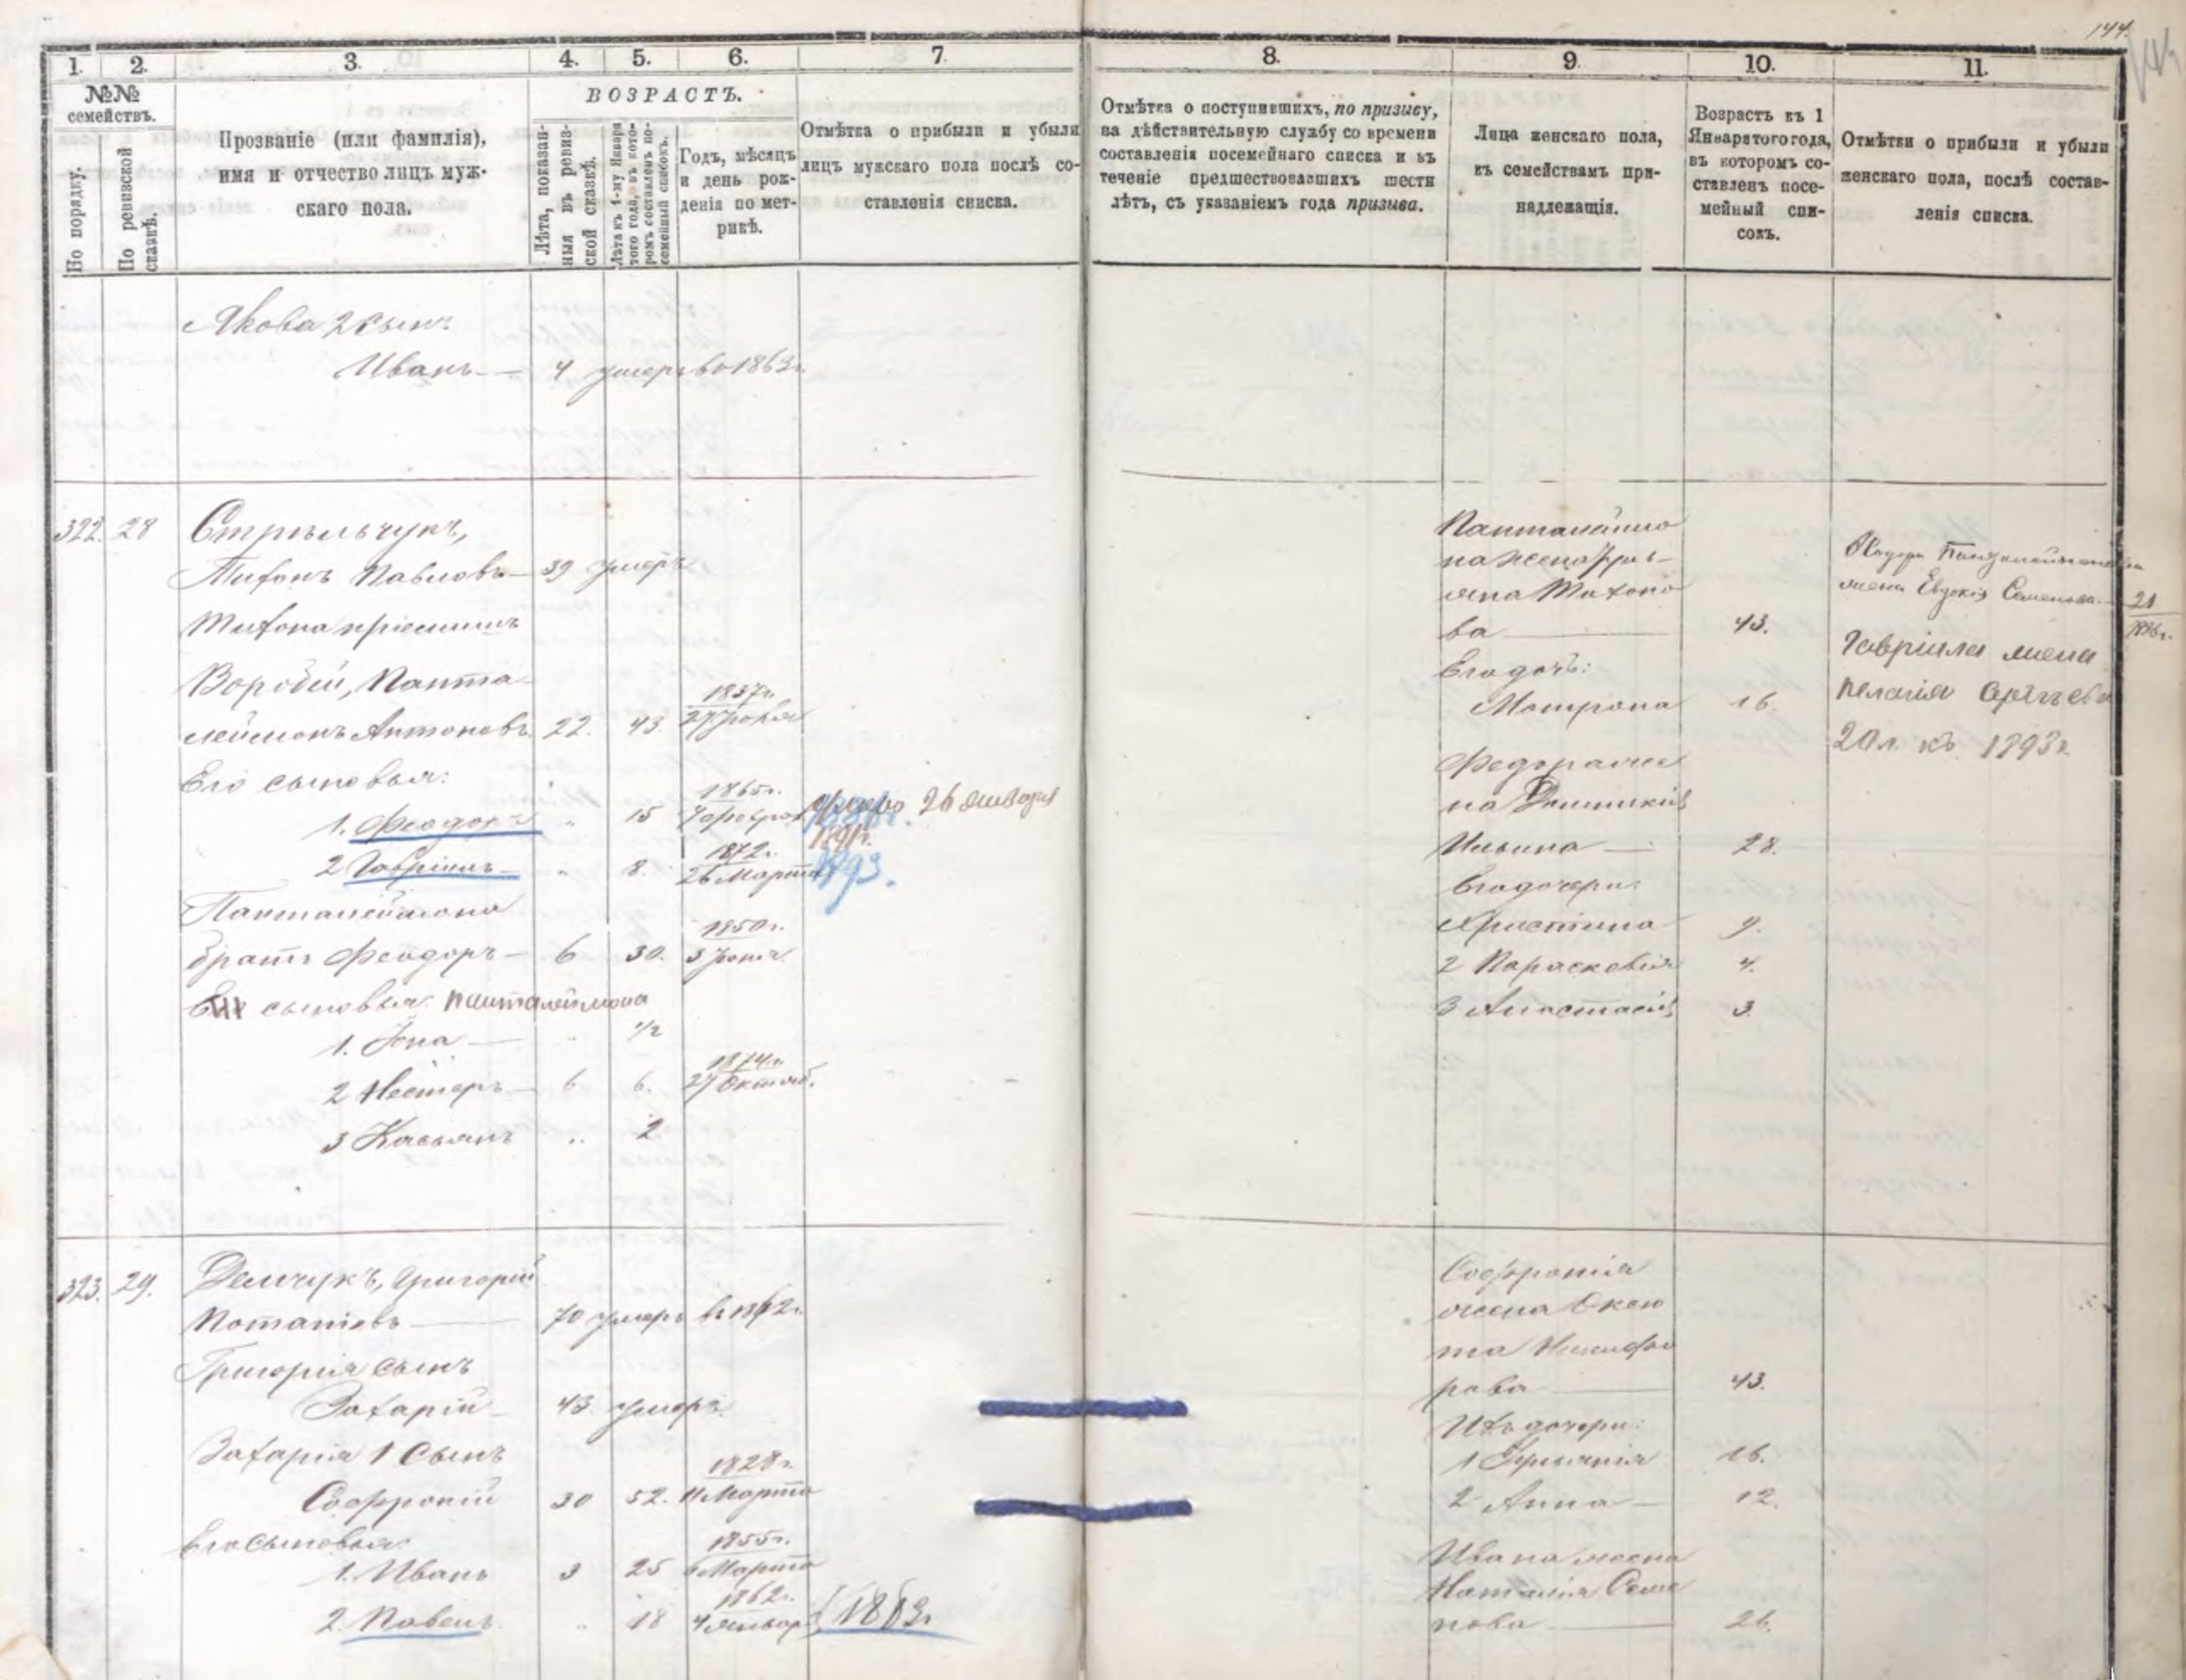 144.
1. 2. 3. 4. 5. 6. 7.
№№ семействъ.
По порядку.
По ревизской сказкѣ.
Прозваніе (или фамилія),
имя и отчество лицъ муж-
скаго пола.
ВОЗРАСТЪ.
Лѣта, показан-
ныя въ ревиз-
ской сказкѣ.
Лѣта къ 1-му Января
того года, въ кото-
ромъ составленъ по-
семейный списокъ.
Годъ, мѣсяцъ
и день рож-
денія по мет-
рикѣ.
Отмѣтка о прибыли и убыли
лицъ мужскаго пола послѣ со-
ставленія списка.
Якова 2 сынъ
Иванъ 4 умеръ въ 1863г.
322. 28 Стрѣльчукъ,
Тихонъ Павловъ 39 умеръ
Тихона пріемышъ
Воробій, Панта-
1837г.
леймонъ Антоновъ 22. 43. 27 Іюля
Его сыновья:
1865г.
1. Феодоръ " 15 26 Января
1891г.
1872г.
2 Гавріилъ " 8. 26 Марта 1893.
Панталеймона
1850г.
братъ Феодоръ 6 30. 3
сыновья: Панталеймона
1. Іона " 1/2
1874г.
2 Несторъ 6 6. 27 Октяб.
3 Касьянъ " 2
323. 29. Демчукъ, Григорій
Потапіевъ 70 умеръ въ
Григорія сынъ
Захарій 43. умеръ
Захарія 1 сынъ
1828г.
Софроній 30 52. 11 Марта
Его сыновья:
1855г.
1. Иванъ 3 25 6 Марта
1862г.
2. Павелъ " 18 4 Январ.
8. 9. 10. 11.
Отмѣтка о поступившихъ, по призыву,
на дѣйствительную службу со времени
составленія посемейнаго списка и въ
теченіе предшествовавшихъ шести
лѣтъ, съ указаніемъ года призыва.
Лица женскаго пола,
къ семействамъ при-
надлежащія.
Возрастъ къ 1
Января того года,
въ которомъ со-
ставленъ посе-
мейный спи-
сокъ.
Отмѣтки о прибыли и убыли
женскаго пола, послѣ состав-
ленія списка.
Панталеймо
на жена
Тихоно
ва 43.
Его дочь:
Матрона 16.
Федора же
на Домникія
Ильина 28.
Его дочери:
Христина 9.
2 Парасковія 4.
3 Анастасія 3.
Федора Панталеймонова
жена Евдокія Семенова 21
Гавріила жена
Пелагія Сергѣева
20 л. къ 1893г.
Софронія
жена Оксю
та Никифо
рова 43.
Ихъ дочери:
1 16.
2 Анна 12.
Ивана жена
Наталія Семе
нова 26.